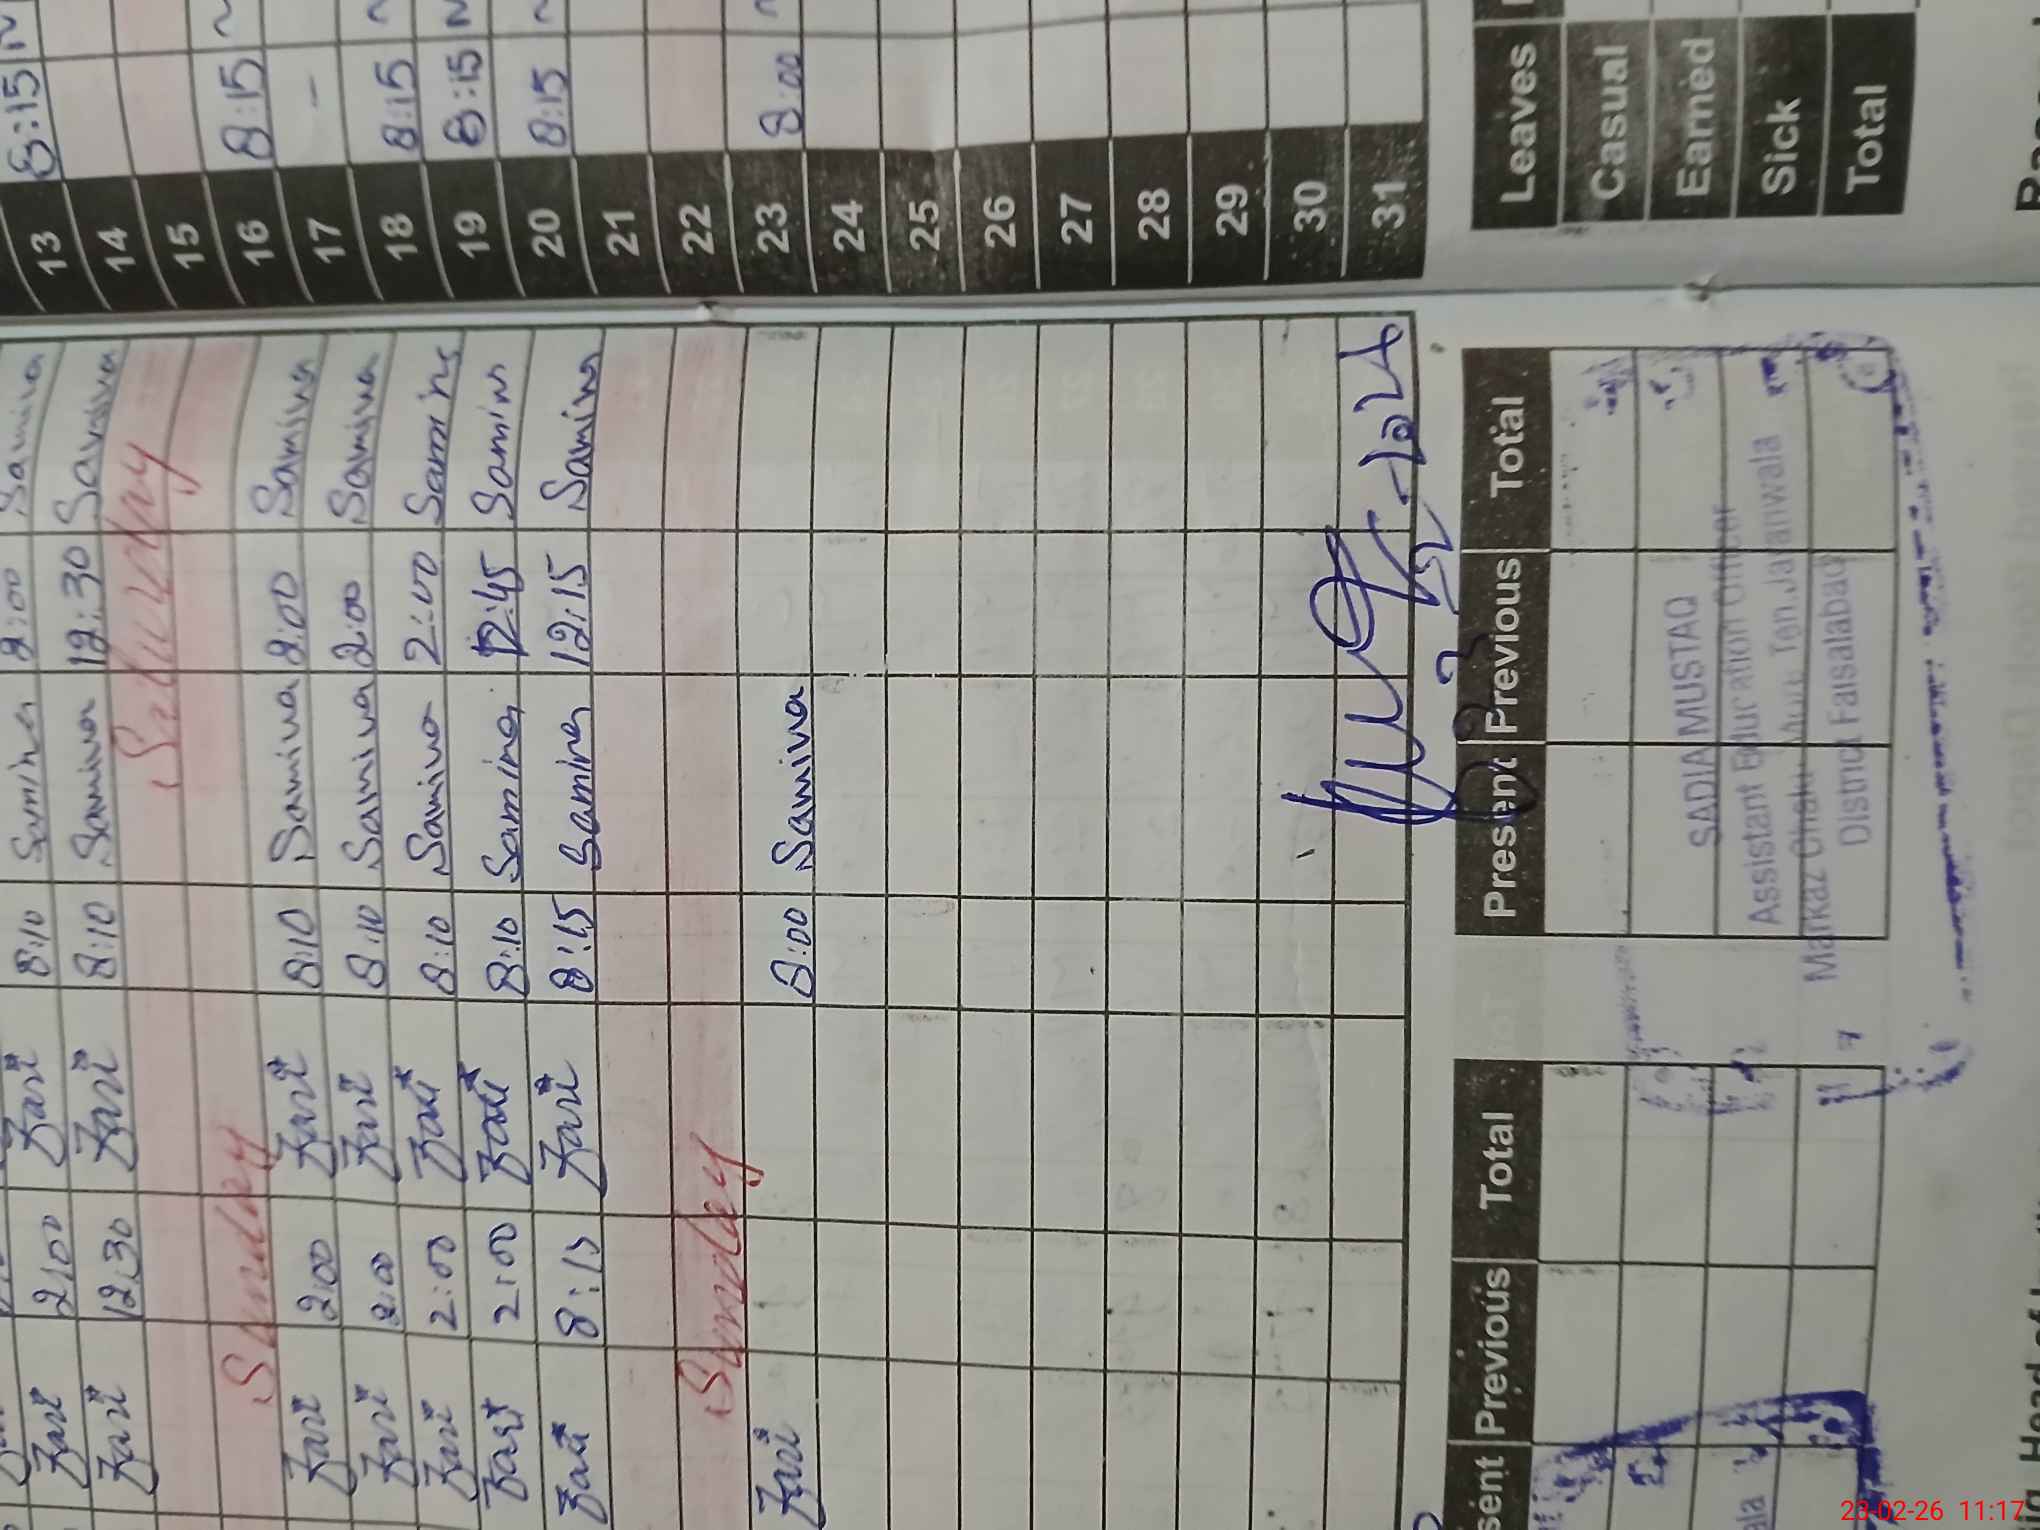 13 8:15
14
15
16 8:15
17 -
18 8:15
19 8:15
20 8:15
21
22
23 8:00
24
25
26
27
28
29
30
31
Leaves
Casual
Earned
Sick
Total
Zari 2:00 Zari 8:10 Samina 2:00 Samina
Zari 12:30 Zari 8:10 Samina 12:30 Samina
Sunday
Zari 2:00 Zari 8:10 Samina 2:00 Samina
Zari 2:00 Zari 8:10 Samina 2:00 Samina
Zari 2:00 Zari 8:10 Samina 2:00 Samina
Zari 2:00 Zari 8:10 Samina 12:45 Samina
Zari 8:15 Zari 8:15 Samina 12:15 Samina
Sunday
Zari 8:00 Samina
sent Previous Total Present Previous Total
SADIA MUSTAQ
Assistant Education Officer
Markaz Ten.Jaranwala
District Faisalabad
23-02-26 11:17